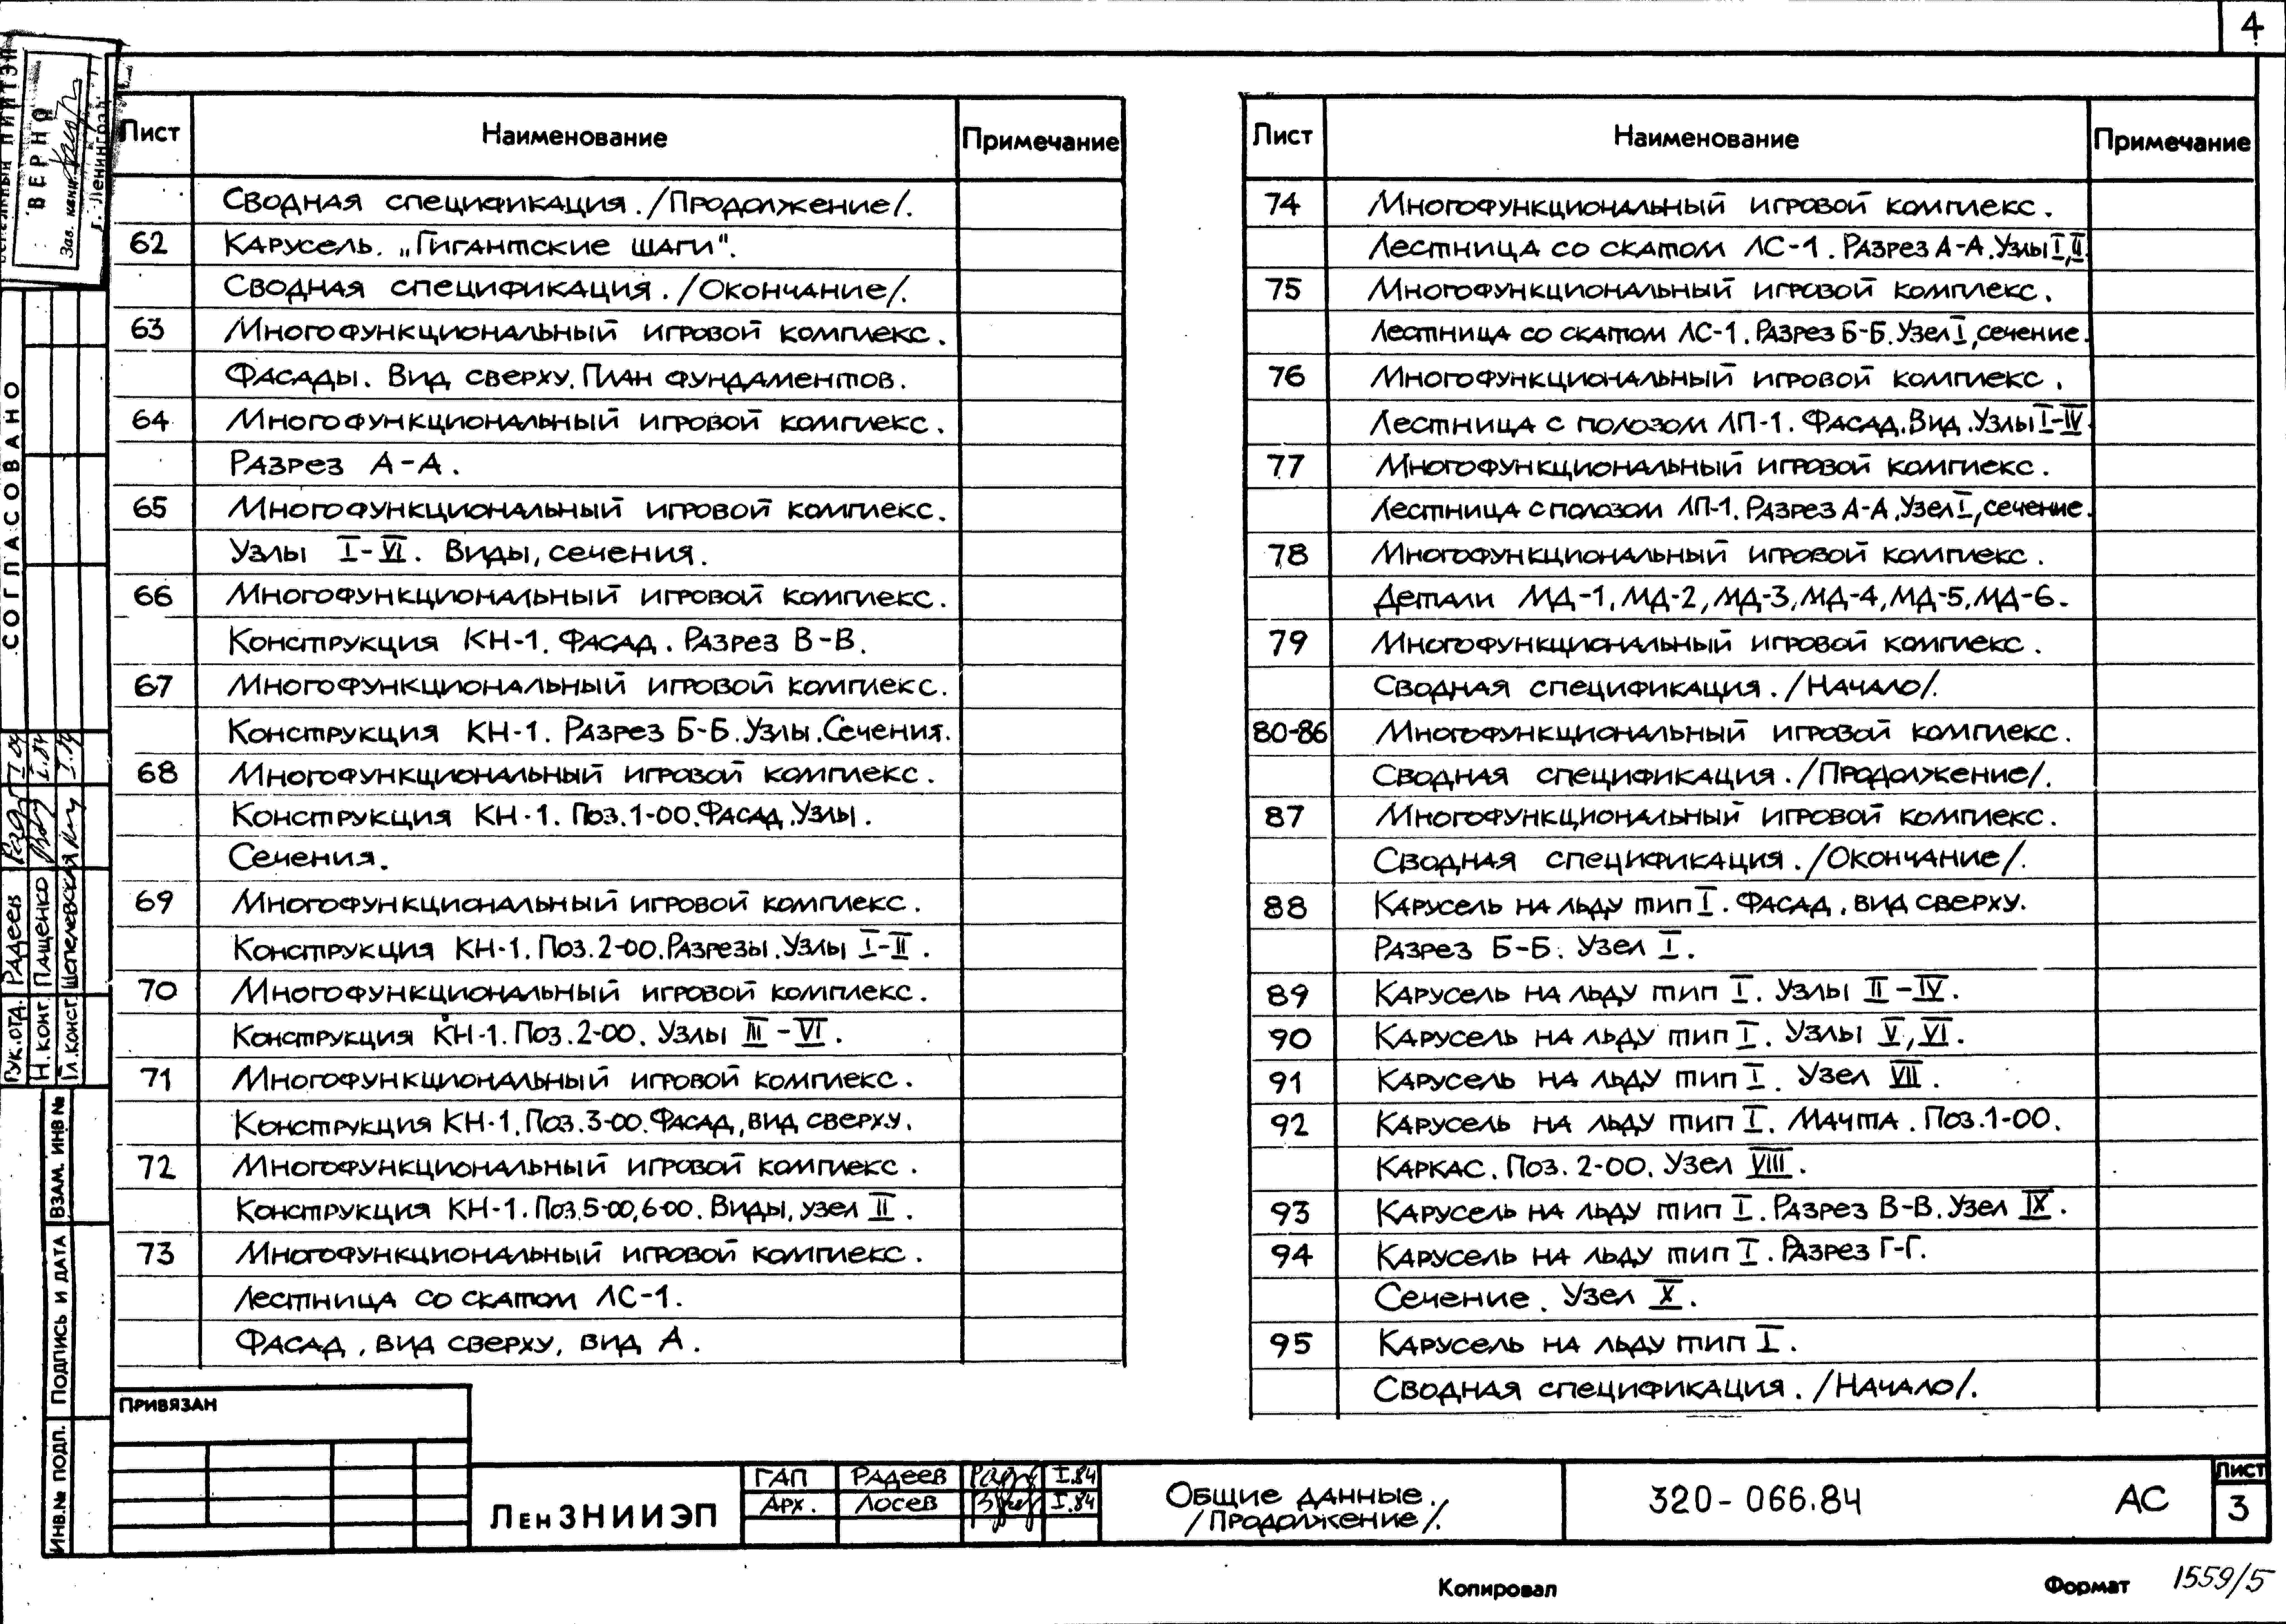 4
Лист Наименование Примечание
Сводная спецификация. /Продолжение/.
62 Карусель. „Гигантские шаги".
Сводная спецификация. /Окончание/.
63 Многофункциональный игровой комплекс.
Фасады. Вид сверху. План фундаментов.
64 Многофункциональный игровой комплекс.
Разрез А-А.
65 Многофункциональный игровой комплекс.
Узлы I-VI. Виды, сечения.
66 Многофункциональный игровой комплекс.
Конструкция КН-1. Фасад. Разрез В-В.
67 Многофункциональный игровой комплекс.
Конструкция КН-1. Разрез Б-Б. Узлы. Сечения.
68 Многофункциональный игровой комплекс.
Конструкция КН-1. Поз.1-00. Фасад. Узлы.
Сечения.
69 Многофункциональный игровой комплекс.
Конструкция КН-1. Поз.2-00. Разрезы. Узлы I-II.
70 Многофункциональный игровой комплекс.
Конструкция КН-1. Поз.2-00. Узлы III-VI.
71 Многофункциональный игровой комплекс.
Конструкция КН-1. Поз.3-00. Фасад, вид сверху.
72 Многофункциональный игровой комплекс.
Конструкция КН-1. Поз.5-00, 6-00. Виды, узел II.
73 Многофункциональный игровой комплекс.
Лестница со скатом ЛС-1.
Фасад, вид сверху, вид А.
Лист Наименование Примечание
74 Многофункциональный игровой комплекс.
Лестница со скатом ЛС-1. Разрез А-А. Узлы I, II.
75 Многофункциональный игровой комплекс.
Лестница со скатом ЛС-1. Разрез Б-Б. Узел I, сечение.
76 Многофункциональный игровой комплекс.
Лестница с полозом ЛП-1. Фасад. Вид. Узлы I-IV.
77 Многофункциональный игровой комплекс.
Лестница с полозом ЛП-1. Разрез А-А. Узел I, сечение.
78 Многофункциональный игровой комплекс.
Детали МД-1, МД-2, МД-3, МД-4, МД-5, МД-6.
79 Многофункциональный игровой комплекс.
Сводная спецификация. /Начало/.
80-86 Многофункциональный игровой комплекс.
Сводная спецификация. /Продолжение/.
87 Многофункциональный игровой комплекс.
Сводная спецификация. /Окончание/.
88 Карусель на льду тип I. Фасад, вид сверху.
Разрез Б-Б. Узел I.
89 Карусель на льду тип I. Узлы II-IV.
90 Карусель на льду тип I. Узлы V, VI.
91 Карусель на льду тип I. Узел VII.
92 Карусель на льду тип I. Мачта. Поз.1-00.
Каркас. Поз. 2-00. Узел VIII.
93 Карусель на льду тип I. Разрез В-В. Узел IX.
94 Карусель на льду тип I. Разрез Г-Г.
Сечение. Узел X.
95 Карусель на льду тип I.
Сводная спецификация. /Начало/.
ВЕРНО
Зав. канц.
г. Ленинград
СОГЛАСОВАНО
Рук.отд. Радеев
Н.конт. Пащенко I.84
Гл.конст. Шепелевская I.84
ВЗАМ. ИНВ №
ПОДПИСЬ И ДАТА
ИНВ.№ ПОДЛ.
ПРИВЯЗАН
ЛенЗНИИЭП
ГАП Радеев I.84
Арх. Лосев I.84
Общие данные.
/Продолжение/.
320-066.84 АС
Лист
3
Копировал Формат 1559/5